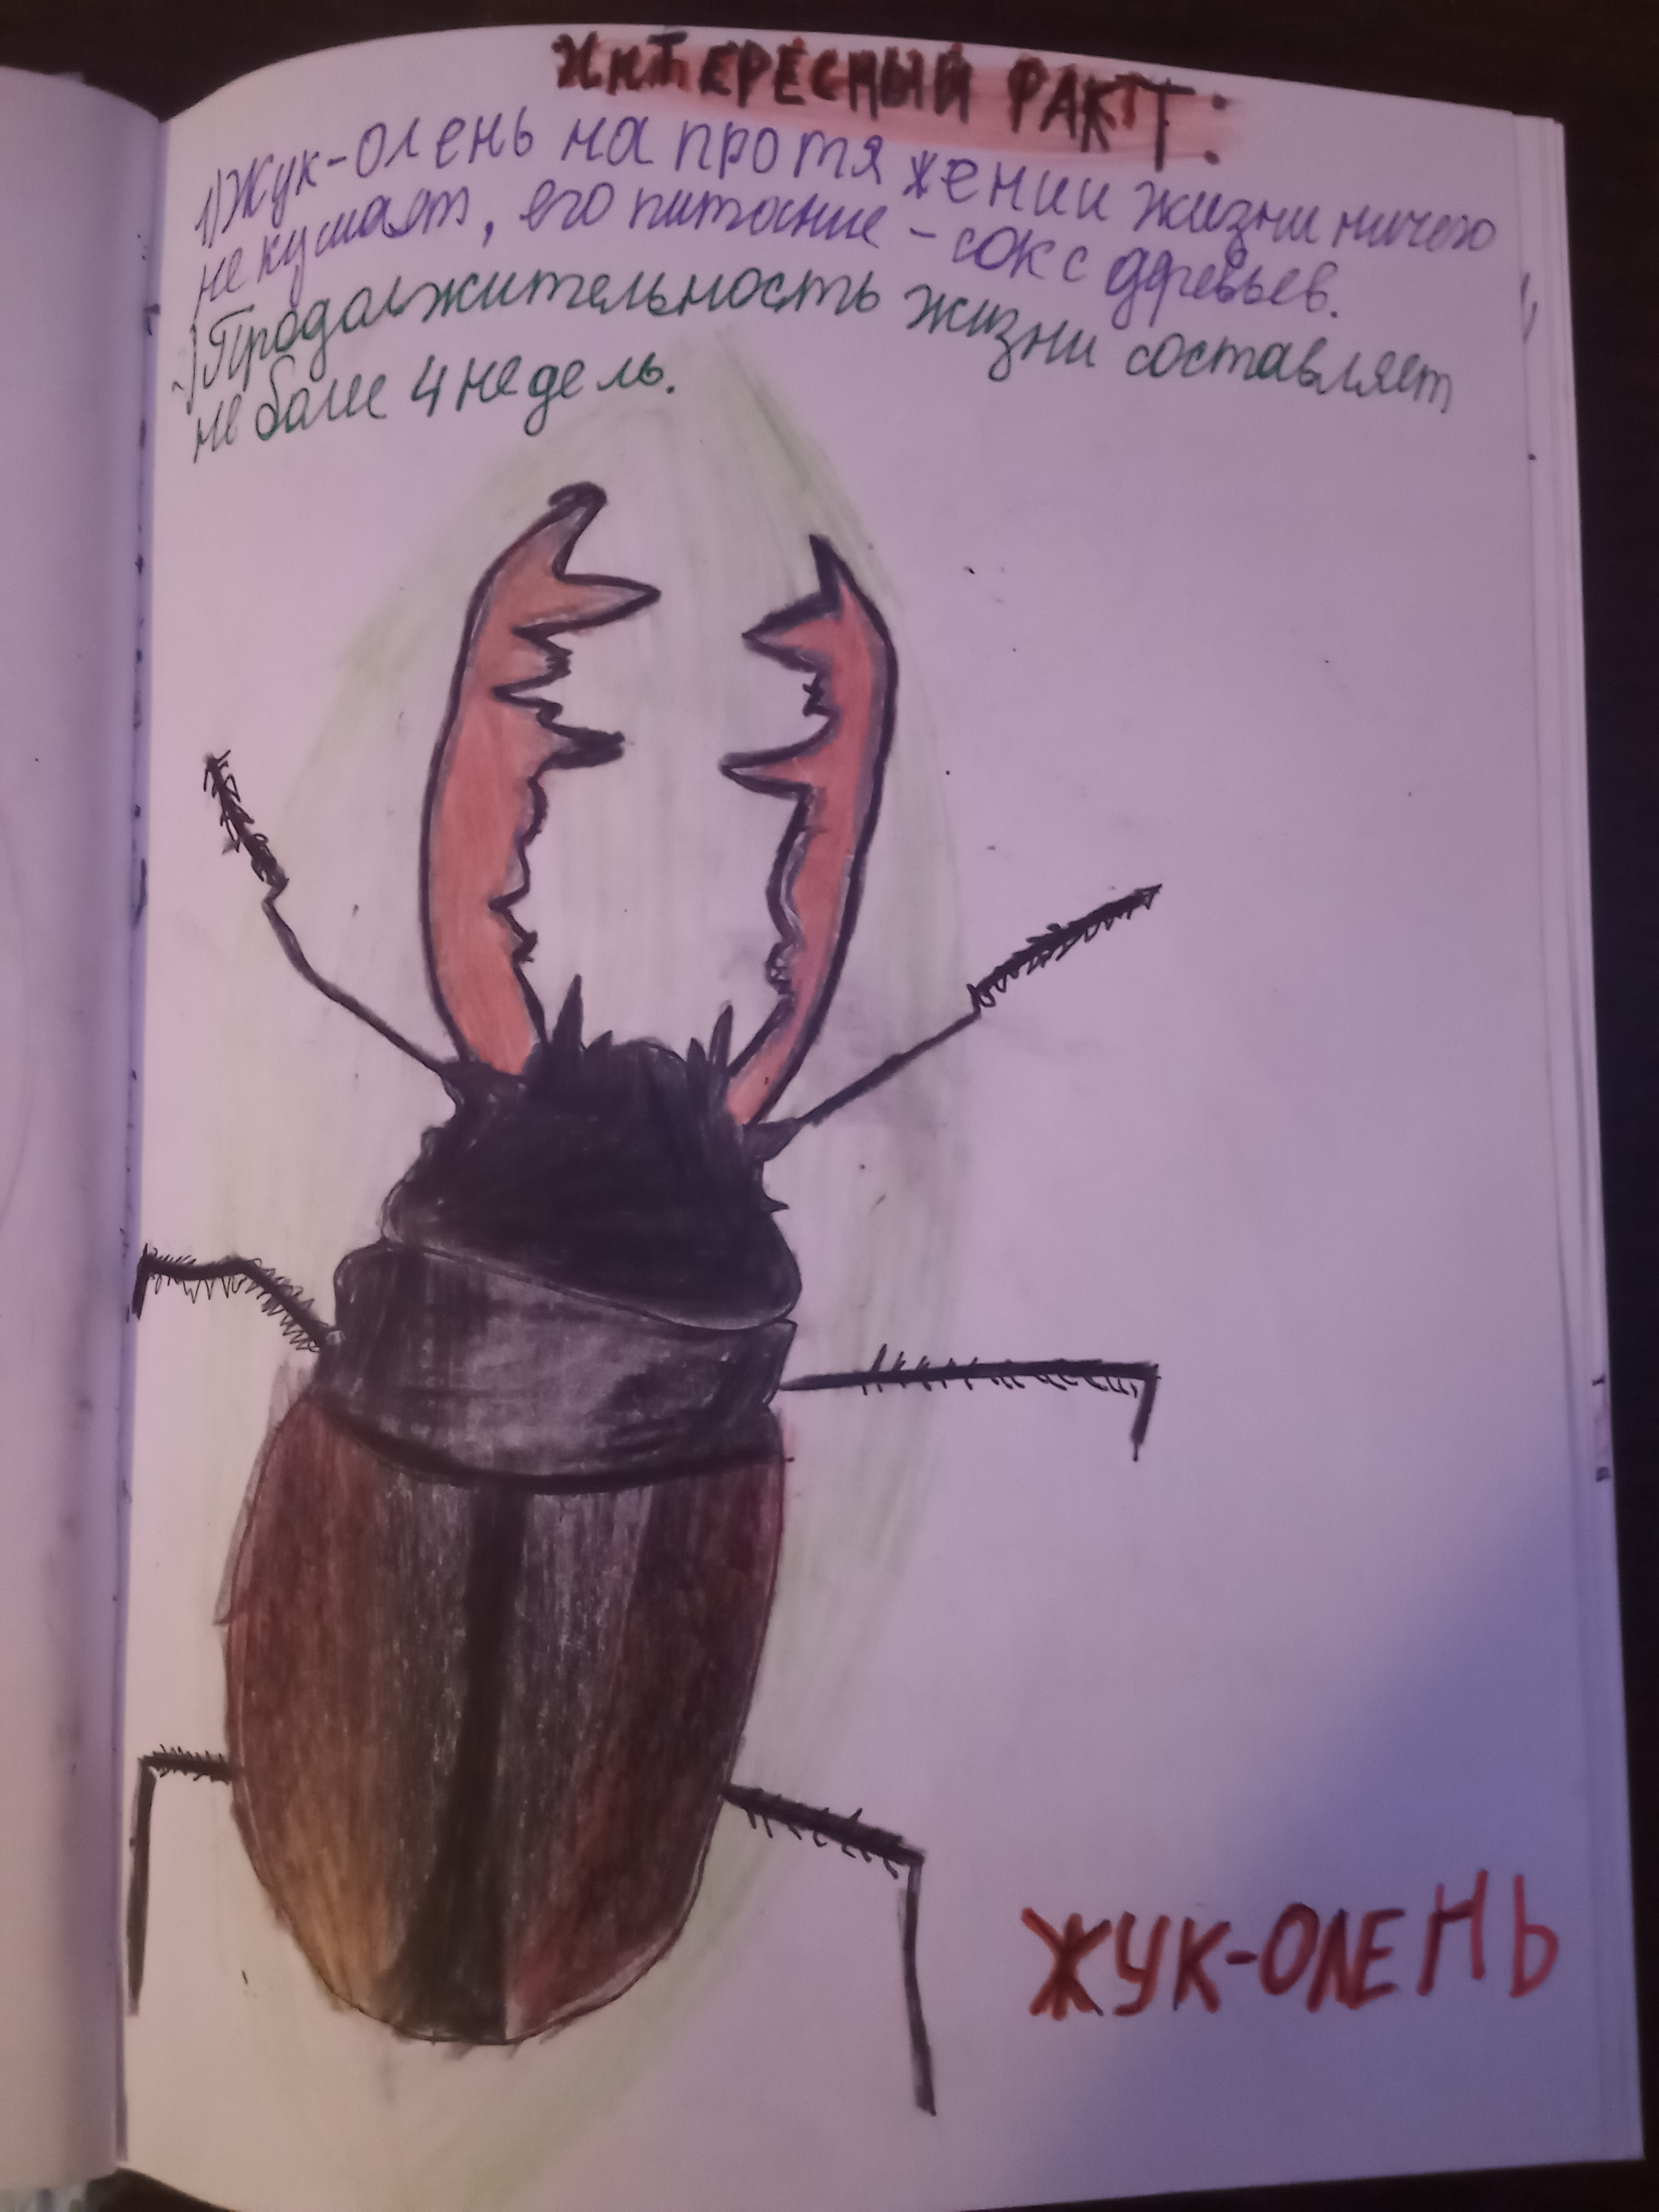 ИНТЕРЕСНЫЙ ФАКТ:
1) Жук-олень на протяжении жизни ничего
не кушает, его питание - сок с деревьев.
2) Продолжительность жизни составляет
не более 4 недель.
ЖУК-ОЛЕНЬ